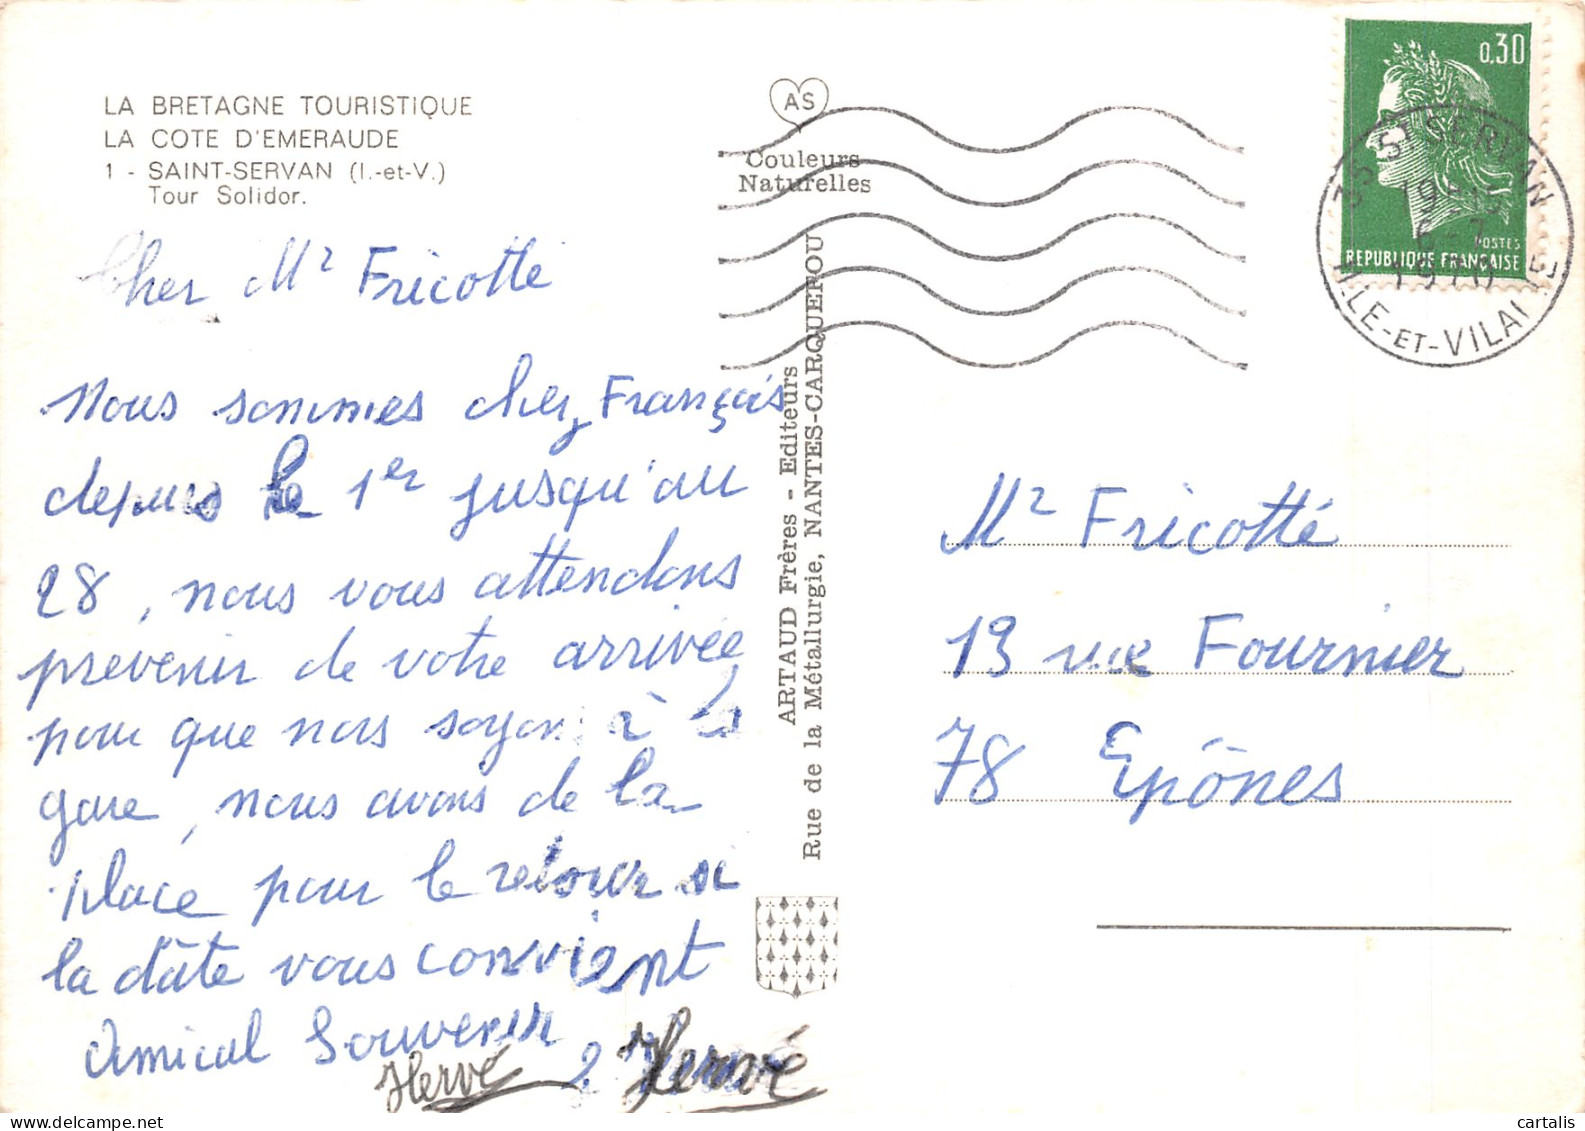 LA BRETAGNE TOURISTIQUE
LA COTE D'EMERAUDE
1 - SAINT-SERVAN (I.-et-V.)
Tour Solidor.
Cher Mr Fricotte
Nous sommes chez François
depuis le 1er jusqu'au
28, nous vous attendons
prevenir de votre arrivée
pour que nous soyons à la
gare, nous avons de la
place pour le retour si
la dâte vous convient
Amical Souvenir
Hervé
Hervé
AS
Couleurs
Naturelles
ARTAUD Frères - Editeurs
Rue de la Métallurgie, NANTES-CARQUEFOU
0,30
POSTES
REPUBLIQUE FRANÇAISE
35 ST SERVAN
6-7
1970
ILLE-ET-VILAINE
Mr Fricotté
19 rue Fournier
78 Epônes
cartalis
www.delcampe.net